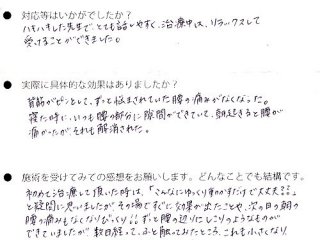 対応等はいかがでしたか？
ハキハキした先生で、とても話しやすく、治療中は、リラックスして
受けることができました。
● 実際に具体的な効果はありましたか？
背筋がピンとして、ずっと悩まされていた腰の痛みがなくなった。
寝た時に、いつも腰の部分に隙間ができていて、朝起きると腰が
痛かったがそれも解消された。
● 施術を受けてみての感想をお願いします。どんなことでも結構です。
初めて治療して頂いた時は、「こんなにゆっくり動かすだけで大丈夫？？」
と疑問に思いましたが、その場ですぐに効果が出たことや、次の日の朝の
腰の痛みもなくなりびっくり!!ずっと腰の辺りにしこりのようなものが
できていましたが数日経って、ふと触ってみたところ、これも小さくなり